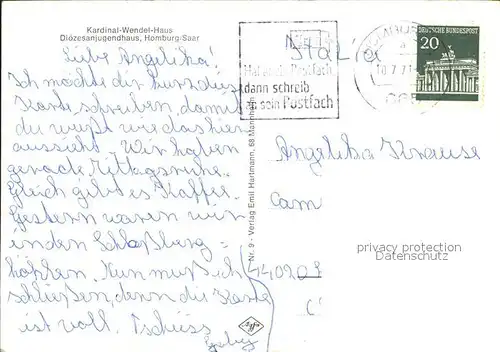 Kardinal-Wendel-Haus
Diözesanjugendhaus, Homburg-Saar
Liebe Angelika!
Ich möchte dir kurz diese
Karte schreiben damit
du weißt wie das hier
aussieht. Wir haben
gerade Mittagsruhe.
Gleich gibt es Kaffee.
Gestern waren wir
in den Schloßberg=
höhlen. Nun muß ich
schließen, denn die Karte
ist voll. Tschüss
Nr. 9 - Verlag Emil Hartmann, 68 Mannheim
Hat er ein Postfach
dann schreib
sein Postfach
DEUTSCHE BUNDESPOST
20
Italia
Angelika Krause
Cam
privacy protection
Datenschutz